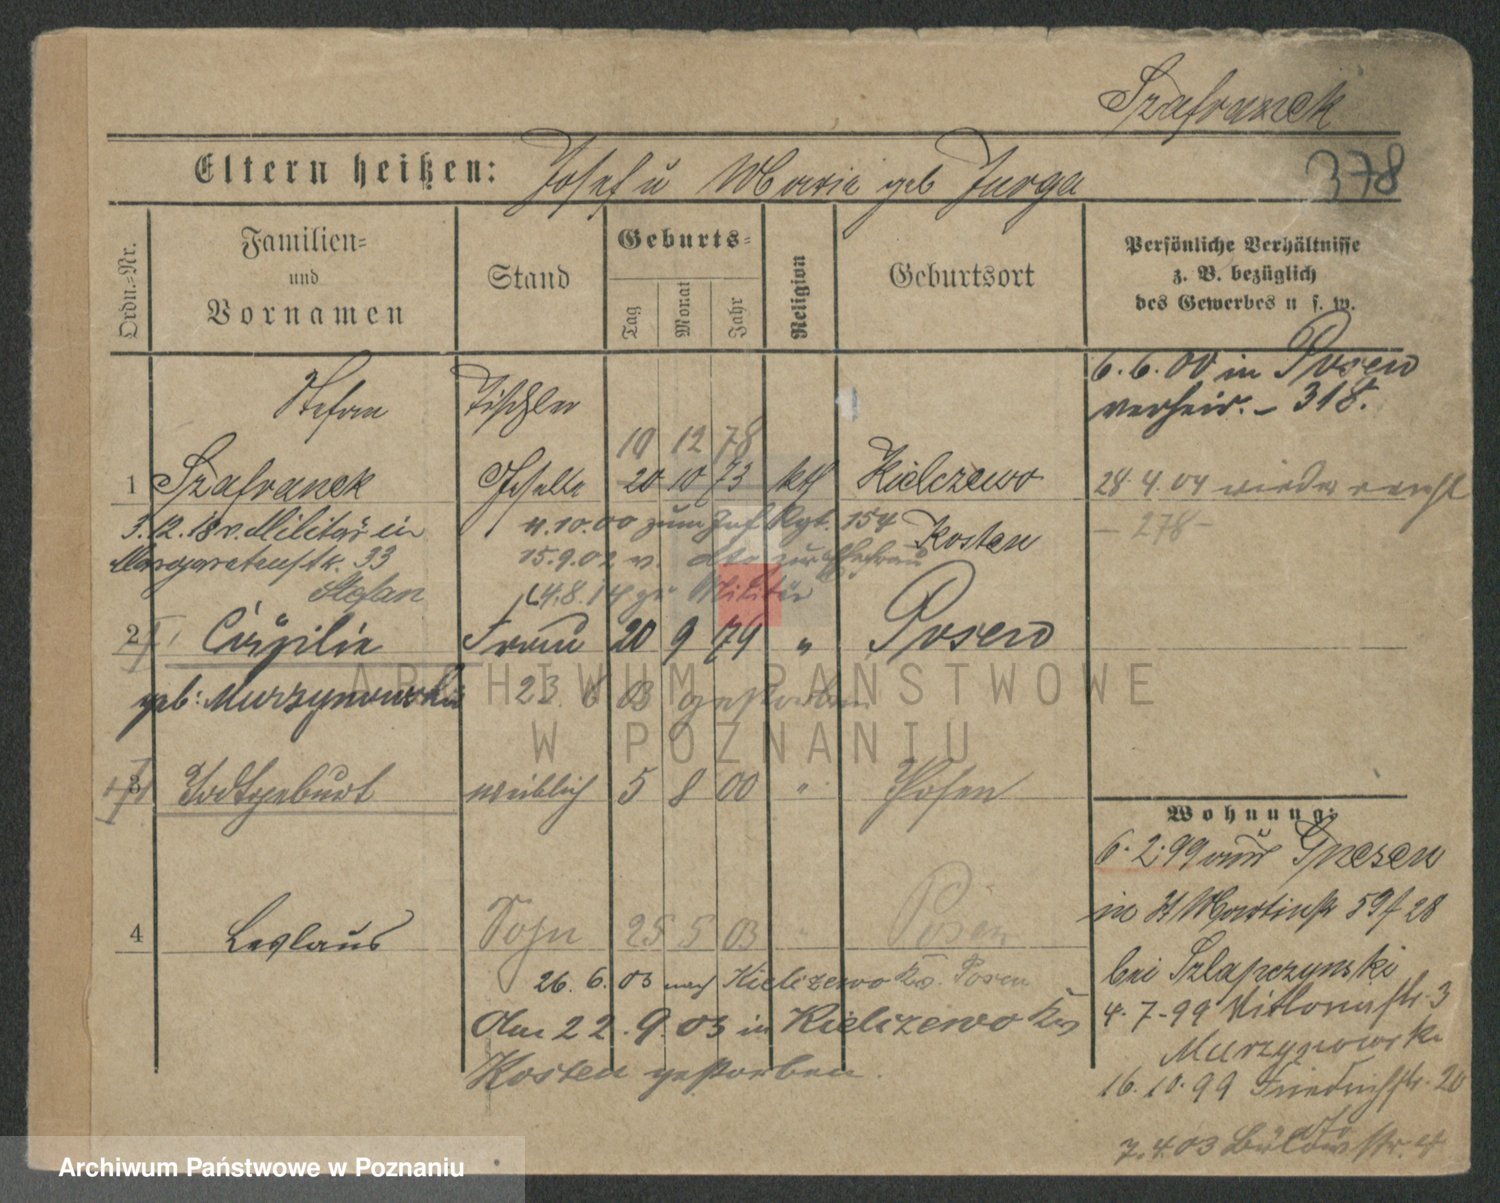 Szafranek
Eltern heißen: Josef u Maria geb Jurga
378
Ordn.=Nr.
Familien=
und
Vornamen
Stand
Geburts=
Tag
Monat
Jahr
Religion
Geburtsort
Persönliche Verhältnisse
z. B. bezüglich
des Gewerbes u s. w.
6. 6. 00 in Posen
verheir. – 318.
Stefan Tischler
10 12 78
1 Szafranek Geselle 20 10 73 kth Kielczewo
28. 4. 04 wieder
– 278 –
3. 12. 18 v. Militär in 4. 10. 00 zum Inf Rgt. 154 Kosten
Margaretenstr. 33 15. 9. 02 v. dto zur Ehefrau
Stefan 4. 8. 14 zu Militär
2 Cäzilie Frau 20 9 79 " Posen
geb: Murzynowska 23. 6 03 gestorben
3 Todtgeburt weiblich 5 8 00 " Posen
Wohnung:
6. 2. 99 aus Gnesen
in St Martinstr 59 f 28
4 Leslaus Sohn 25 5 03 " Posen
bei Szlapczynski
26. 6. 03 nach Kielczewo Krs. Posen
4. 7. 99 Viktoriastr. 3
Am 22. 9. 03 in Kielczewo Krs
Murzynowski
Kosten gestorben.
16. 10. 99 Friedrichstr. 20
7. 4. 03 Bülowstr. 4
ARCHIWUM PAŃSTWOWE
W POZNANIU
Archiwum Państwowe w Poznaniu